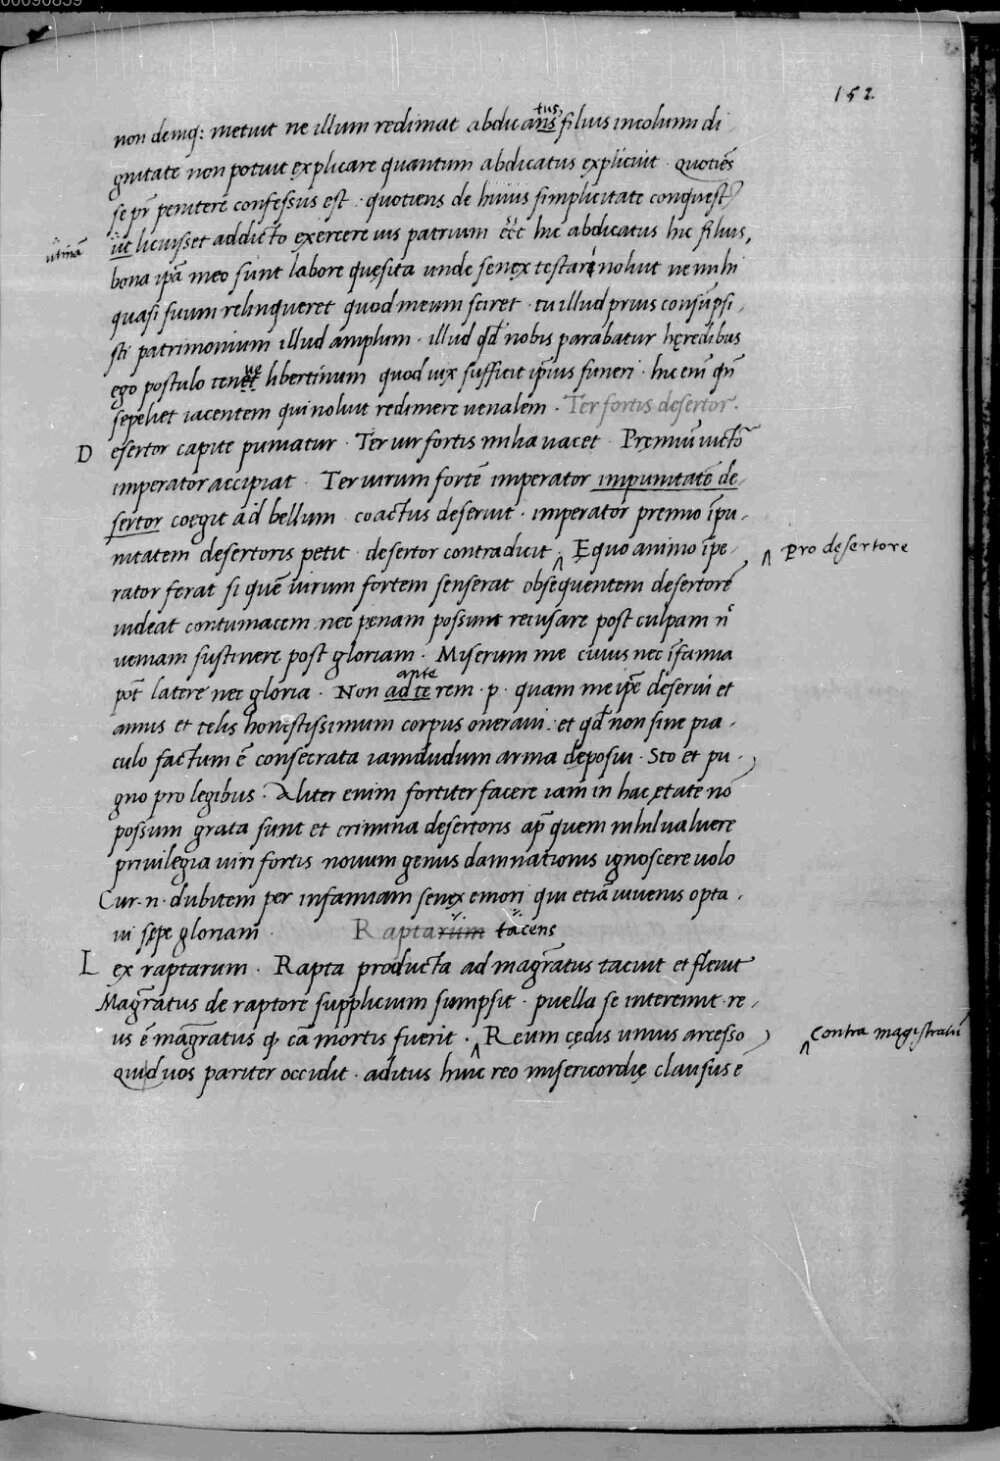 00090859
152
non demq: metuit ne illum redimat abdicans tus filius incolumi di
gnitate non potuit explicare quantum abdicatus explicuit · quotiēs
se pr̄ penitere confessus est · quotiens de huius simplicitate conquest
utinā
ut licuisset addicto exercere ius patrium hic abdicatus hic filius,
bona ipā meo sunt labore quęsita unde senex testari noluit ne mihi
quasi suum relinqueret quod meum sciret · tu illud prius consūpsi,
sti patrimonium illud amplum · illud qd̄ nobis parabatur hęredibus
ego postulo tenue libertinum quod uix sufficit ip̄ius funeri · hic enī qn̄
sepeliet iacentem qui noluit redimere uenalem · Ter fortis desertor.
D esertor capite puniatur · Ter uir fortis militia uacet · Pręmiū uicto
imperator accipiat · Ter uirum fortē imperator impunitatē de
sertor coegit ad bellum · coactus deseruit · imperator premio īpu,
nitatem desertoris petit · desertor contradicit · Equo animo īpe,
Pro desertore
rator ferat si quē uirum fortem senserat obsequentem desertorē
uideat contumacem nec pęnam possunt recusare post culpam n̄
ueniam sustinere post gloriam · Miserum me cuius nec īfamia
pōt latere nec gloria · Non ad te ante rem · p · quam me ipē deserui et
annis et telis honestissimum corpus oneraui · et qd̄ non sine pia,
culo factum ē consecrata iamdudum arma deposui · Sto et pu,
gno pro legibus · Aliter enim fortiter facere iam in hac ętate nō
possum grata sunt et crimina desertoris ap̄ quem nihil ualuere
priuilegia uiri fortis nouum genus damnationis ignoscere uolo
Cur · n · dubitem per infamiam senex emori qui etiā iuuenis opta,
ui sępe gloriam · Raptarum tacens
L ex raptarum · Rapta producta ad magr̄atus tacuit et fleuit
Magr̄atus de raptore supplicium sumpsit · puella se interemit · re,
us ē magr̄atus q̨ cā mortis fuerit · Reum cędis unius arcesso
Contra magistratū
qui duos pariter occidit · aditus huic reo misericordię clausus ē